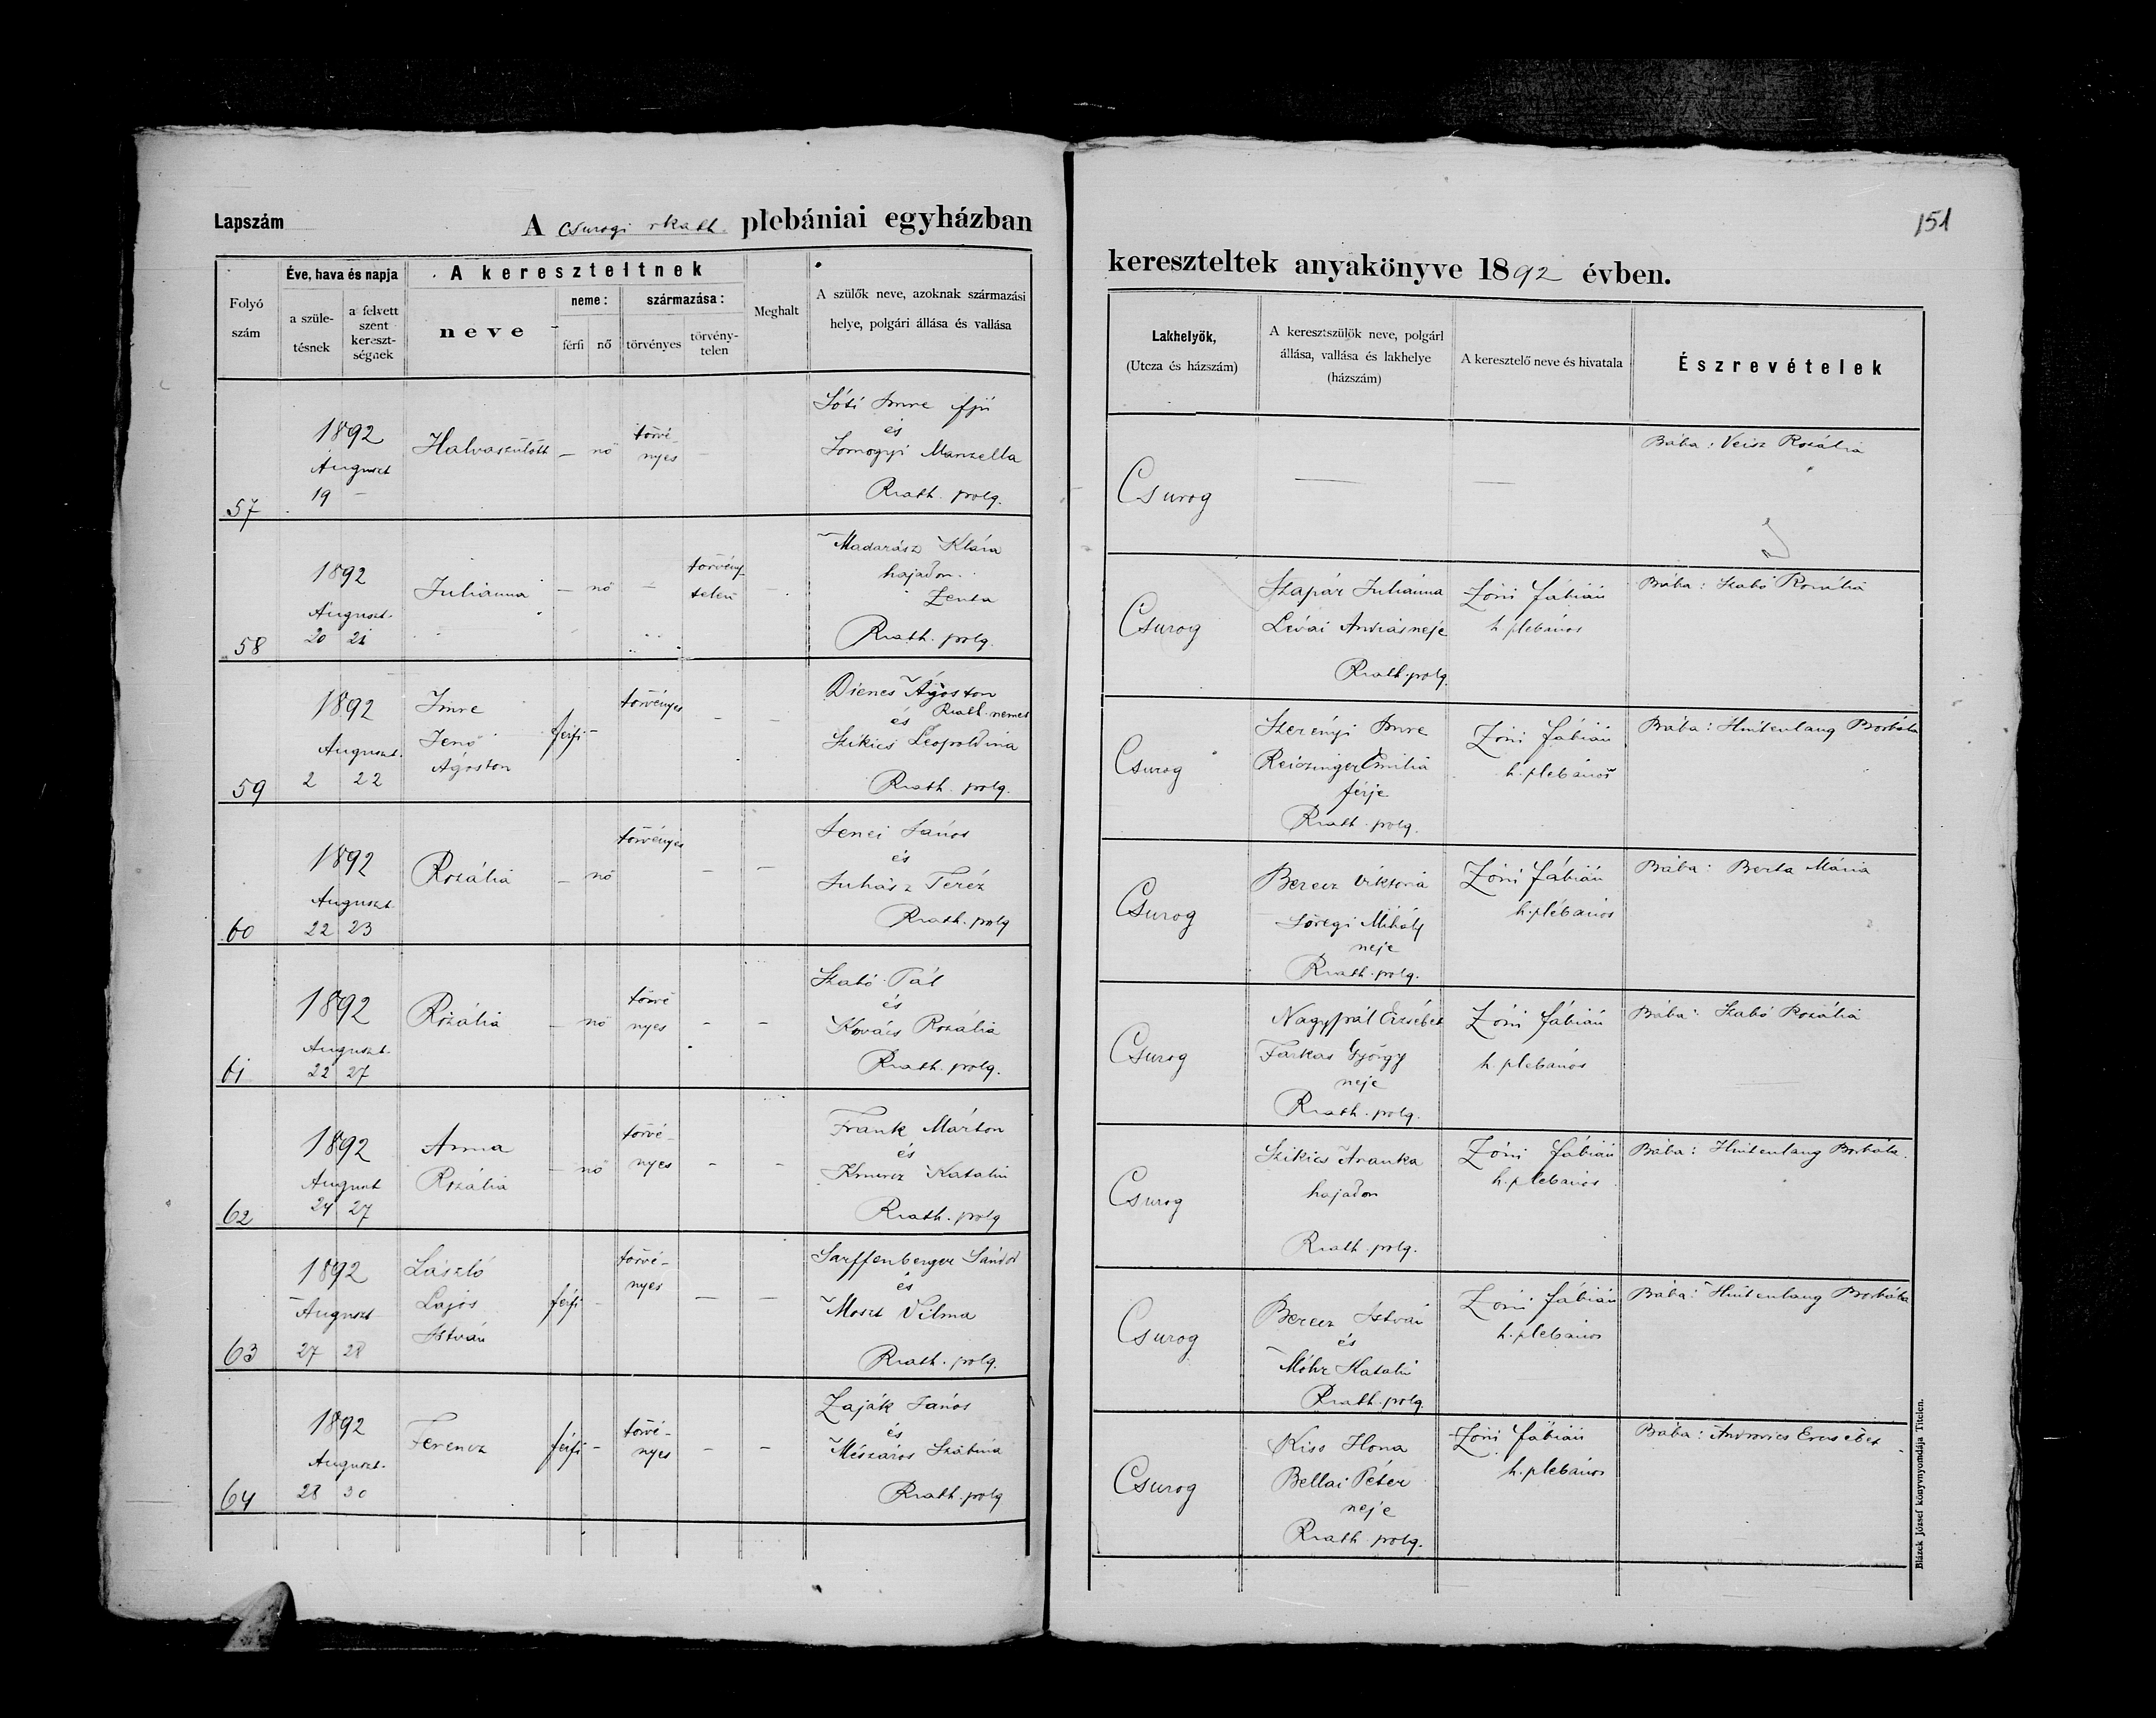 Lapszám
A csurogi rkath. plebániai egyházban
Folyó szám
Éve, hava és napja
a szüle-
tésnek
a felvett
szent
kereszt-
ségnek
A kereszteltnek
neve
neme:
férfi
nő
származása:
törvényes
törvény-
telen
Meghalt
A szülők neve, azoknak származási
helye, polgári állása és vallása
151
kereszteltek anyakönyve 1892 évben.
Lakhelyök,
(Utcza és házszám)
A keresztszülők neve, polgári
állása, vallása és lakhelye
(házszám)
A keresztelő neve és hivatala
Észrevételek
57
1892
Auguszt
19 –
Halvaszülött
– nő
törvé-
nyes
–
Sóti Imre ifjú
és
Somogyi Manzella
Rkath. polg.
Csurog
—
—
Bába: Veisz Rozália
58
1892
Auguszt.
20 21
Juliánna
– nő –
törvény
telen
–
Madarász Klára
hajadon
Zenta
Rkath. polg.
Csurog
Szapár Juliánna
Lévai András neje
Rkath. polg.
Zóni Fábián
h. plebános
Bába: Szabó Rozália
59
1892
Auguszt.
2 22
Imre
Jenő
Ágoston
férfi –
törvényes
– –
Dienes Ágoston
Rkath. nemes
és
Szikics Leopoldina
Rkath. polg.
Csurog
Szerényi Imre
Reiczinger Emilia
férje
Rkath. polg.
Zóni Fábián
h. plebános
Bába: Hintenlang Borbála
60
1892
Auguszt
22 23
Rozália
– nő
törvényes
– –
Jenei János
és
Juhász Teréz
Rkath. polg
Csurog
Berecz Viktoria
Söregi Mihály
neje
Rkath. polg.
Zóni Fábián
h. plébános
Bába: Berta Mária
61
1892
Auguszt.
22 27
Rozália
– nő
törvé
nyes
– –
Szabó Pál
és
Kovács Rozália
Rkath. polg.
Csurog
Nagypál Erzsébet
Farkas György
neje
Rkath. polg.
Zóni Fábián
h. plebános
Bába: Szabó Rozália
62
1892
Auguszt
24 27
Anna
Rozália
– nő
törvé-
nyes
– –
Frank Márton
és
Katalin
Rkath. polg
Csurog
Szikics Aranka
hajadon
Rkath. polg.
Zóni Fábián
h. plebános
Bába: Hintenlang Borbála.
63
1892
Auguszt
27 28
László
Lajos
István
férfi –
törvé-
nyes
– –
Sarffenberger Sándor
és
Moszt Vilma
Rkath. polg.
Csurog
Berecz István
és
Móhr Katalin
Rkath. polg.
Zóni Fábián
h. plebános
Bába: Hintenlang Borbála
64
1892
Auguszt.
28 30
Ferencz
férfi –
törvé-
nyes
– –
Zaják János
és
Mészáros Szabina
Rkath. polg
Csurog
Kiss Ilona
Bellai Péter
neje
Rkath polg.
Zóni Fábián
h. plebános
Bába: Androvics Erzsébet
Blázek József könyvnyomdája Titelen.